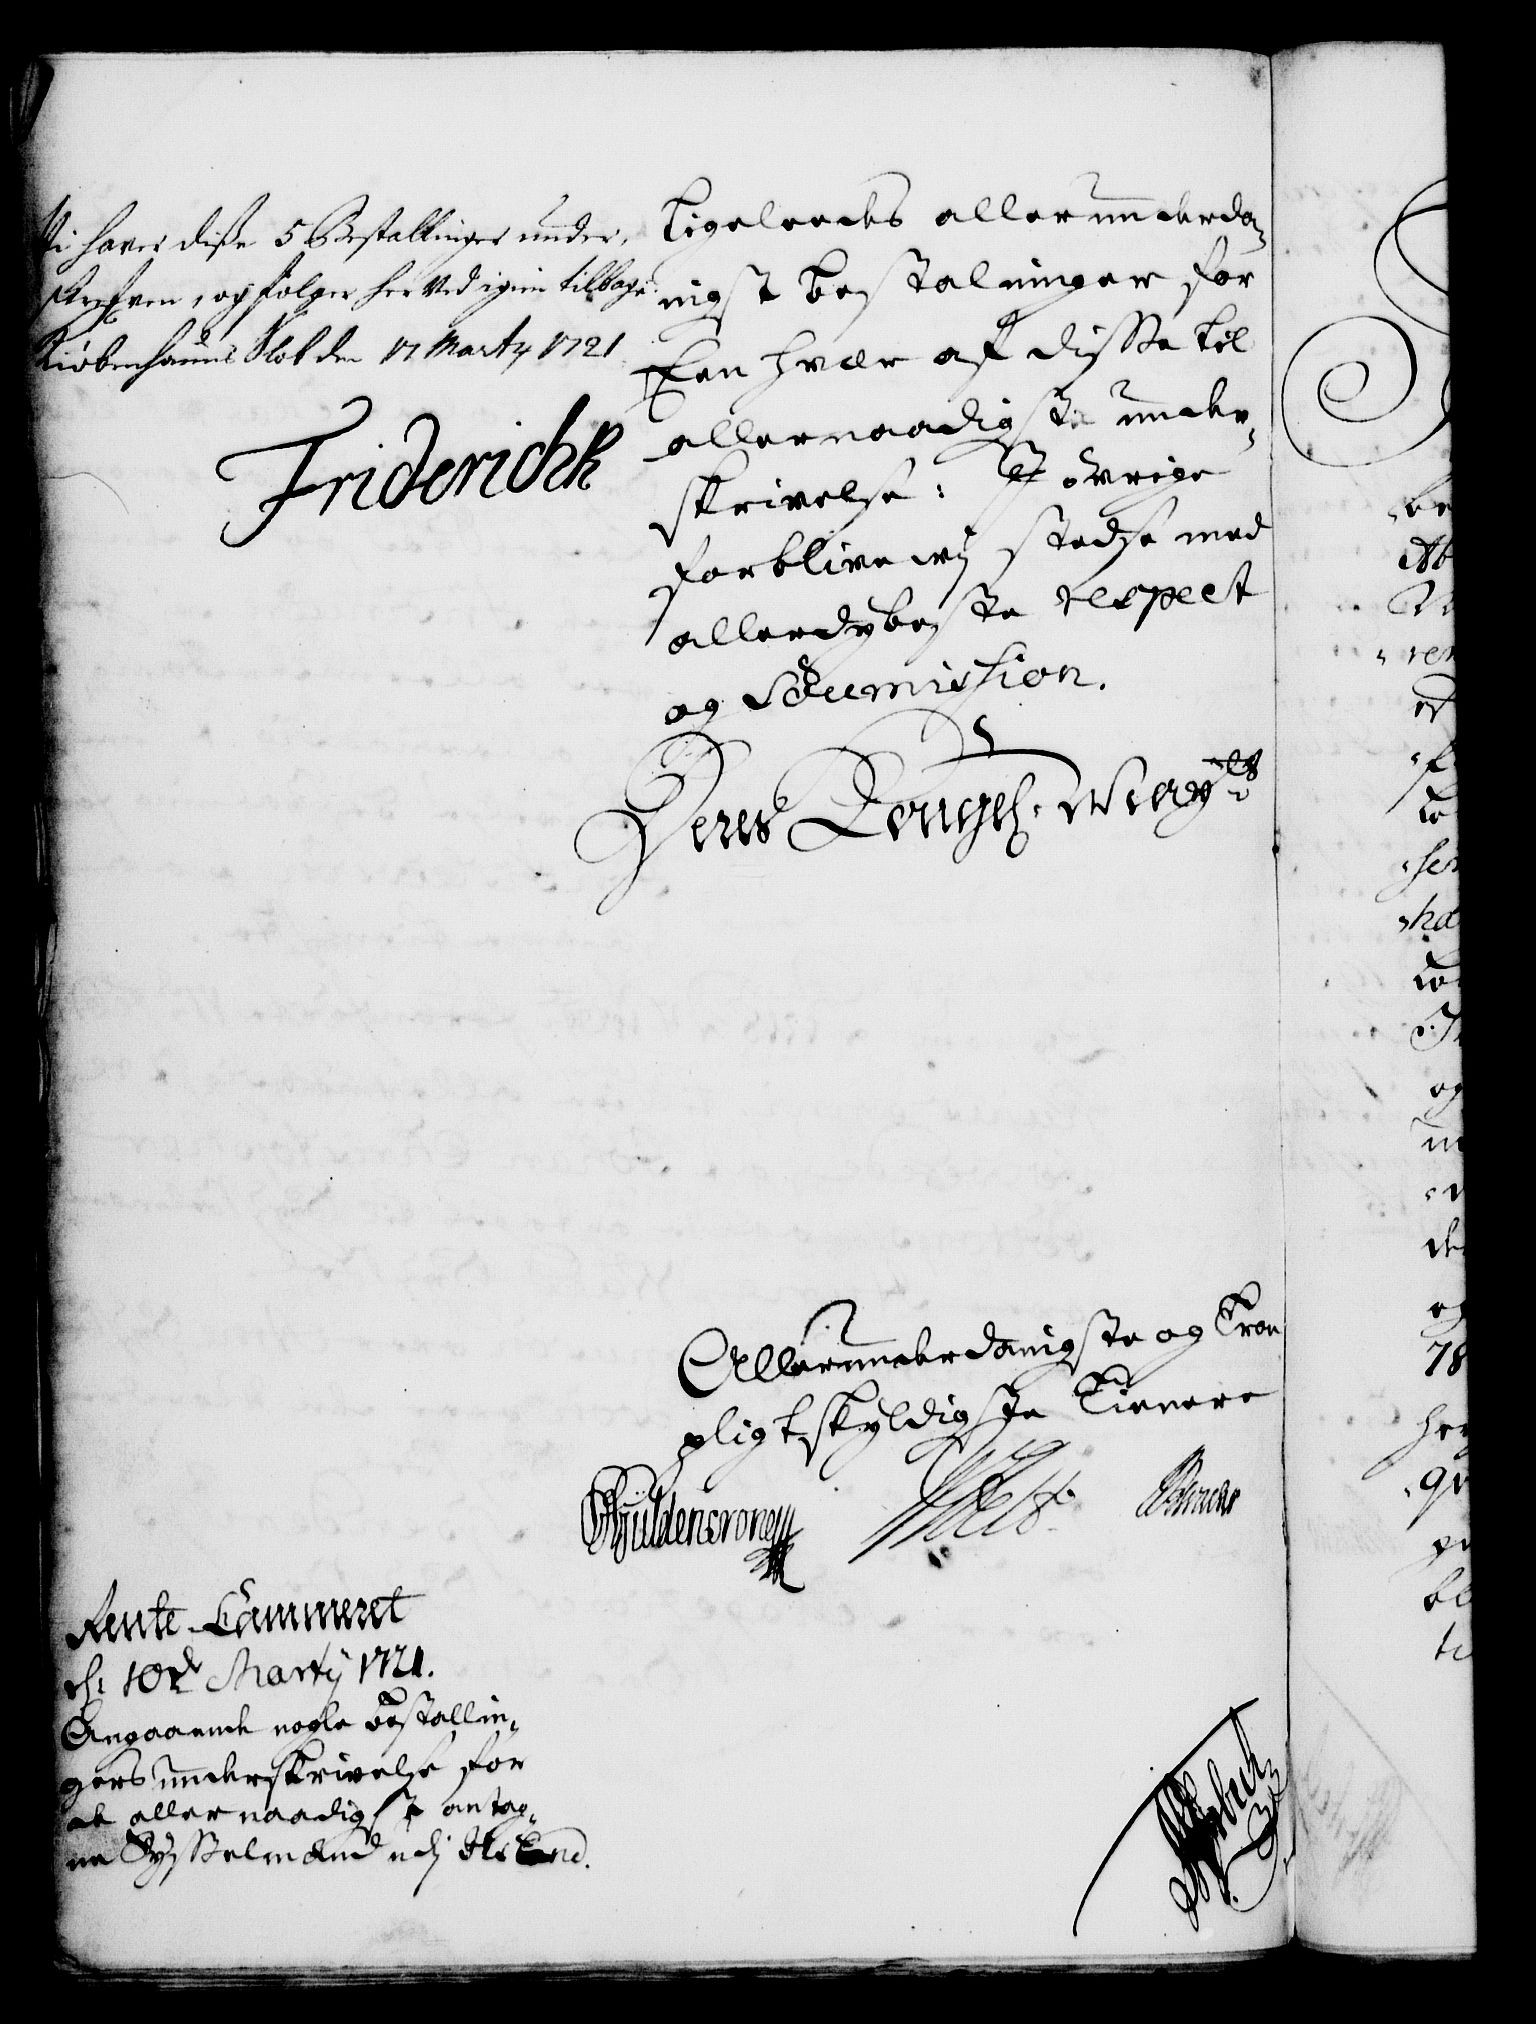 Vi haver diße 5 Bestallinger under,
skrefven, og følger her ved igien tilbage.
Kiøbenhauns Slot den 17 Marty 1721
Friderich R
Ligeleedes allerunderda,
nigst bestalninger for
Een hvær af disse til
allernaadigste under,
skrivelse: I øvrige
forblive wj stedse med
allerdybeste respect
og Soumission.
Deres Kongel. Mayts
Allerunderdanigste og Troe
pligtskyldigste Tienere
Gyldencrone
Rente-Cammeret
d: 10de Martij 1721.
Angaaende nogle bestallin,
gers underskrivelse for
de allernaadigst antag,
ne Sysselmænd udj Island.